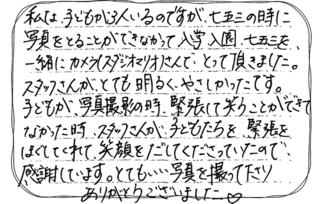 私は、子どもが3人いるのですが、七五三の時に
写真をとることができなかって入学入園、七五三を、
一緒にカメラスタジオマリオさんで、とって頂きました。
スタッフさんが、とても明るく、やさしかったです。
子どもが、写真撮影の時、緊張して笑うことができて
なかった時、スタッフさんが、子どもたちを、緊張を
ほぐしてくれて、笑顔をだしてくださっていたので、
感謝しています。とても…写真を撮ってたり
ありがとうございました♡